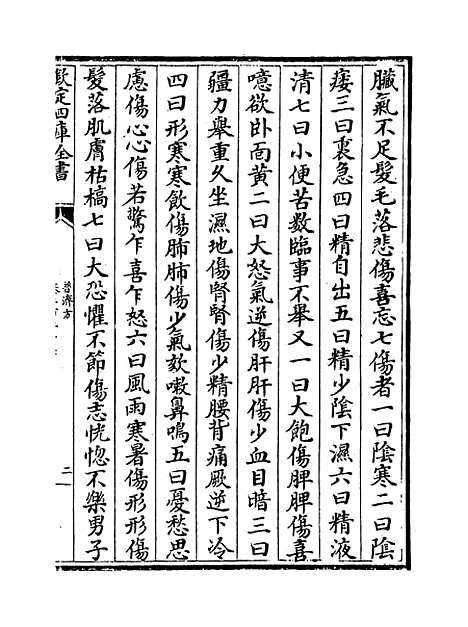 臓氣不足髮毛落悲傷喜忘七傷者一曰陰寒二曰陰
痿三曰裏急四曰精自出五曰精少陰下濕六曰精液
清七曰小便苦數臨事不舉又一曰大飽傷脾脾傷喜
噫欲卧面黄二曰大怒氣逆傷肝肝傷少血目暗三曰
彊力舉重久坐濕地傷腎腎傷少精腰背痛厥逆下冷
四曰形寒寒飲傷肺肺傷少氣欬嗽鼻鳴五曰憂愁思
慮傷心心傷若驚乍喜乍怒六曰風雨寒暑傷形形傷
髮落肌膚枯槁七曰大恐懼不節傷志恍惚不樂男子
欽定四庫全書
普濟方
二